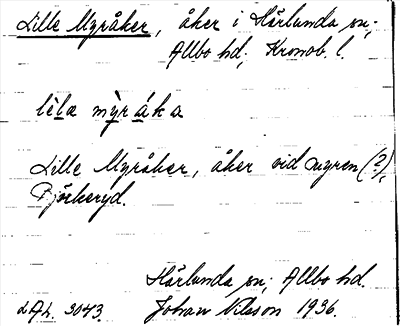 Lille Myråker, åker i Härlunda sn;
Allbo hd; Kronob. l.
lèla mỳr áka
Lille Myråker, åker vid myren (?),
Björkeryd.
Härlunda sn; Allbo hd.
LAL. 3043. Johan Nilsson 1936.